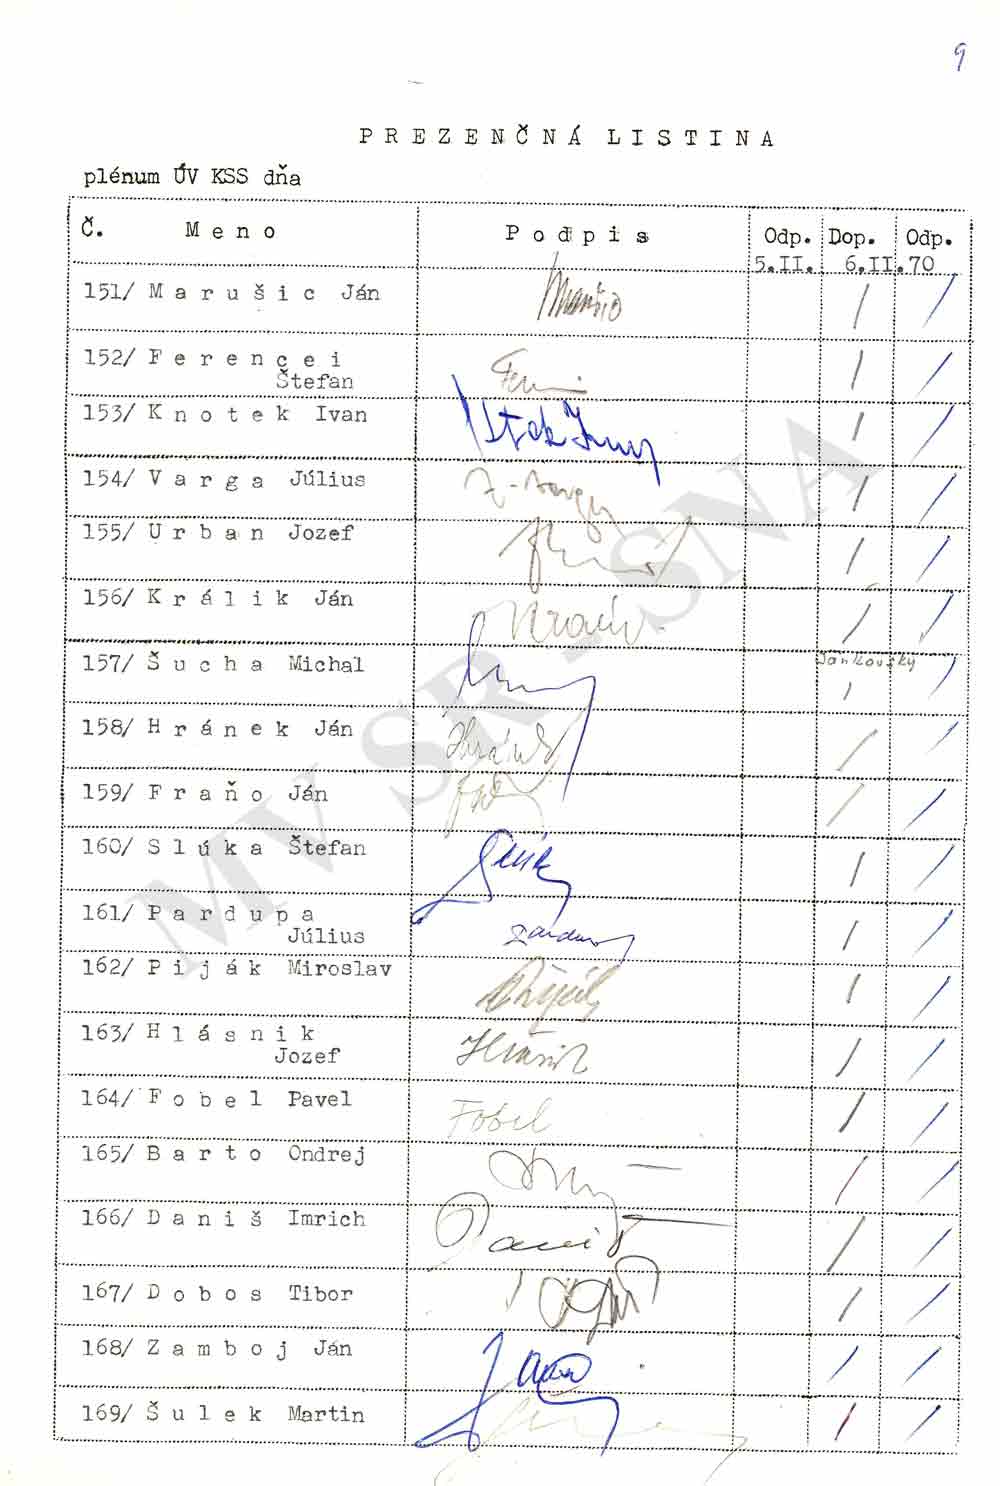 9
PREZENČNÁ LISTINA
plénum ÚV KSS dňa
Č. Meno Podpis Odp. Dop. Odp.
5.II. 6.II.70
151/ Marušic Ján
152/ Ferencei
Štefan
153/ Knotek Ivan
154/ Varga Július
155/ Urban Jozef
156/ Králik Ján
157/ Šucha Michal Jankovský
158/ Hránek Ján
159/ Fraňo Ján
160/ Slúka Štefan
161/ Pardupa
Július
162/ Piják Miroslav
163/ Hlásnik
Jozef
164/ Fobel Pavel Fobel
165/ Barto Ondrej
166/ Daniš Imrich Daniš
167/ Dobos Tibor
168/ Zamboj Ján
169/ Šulek Martin
MV SR - SNA